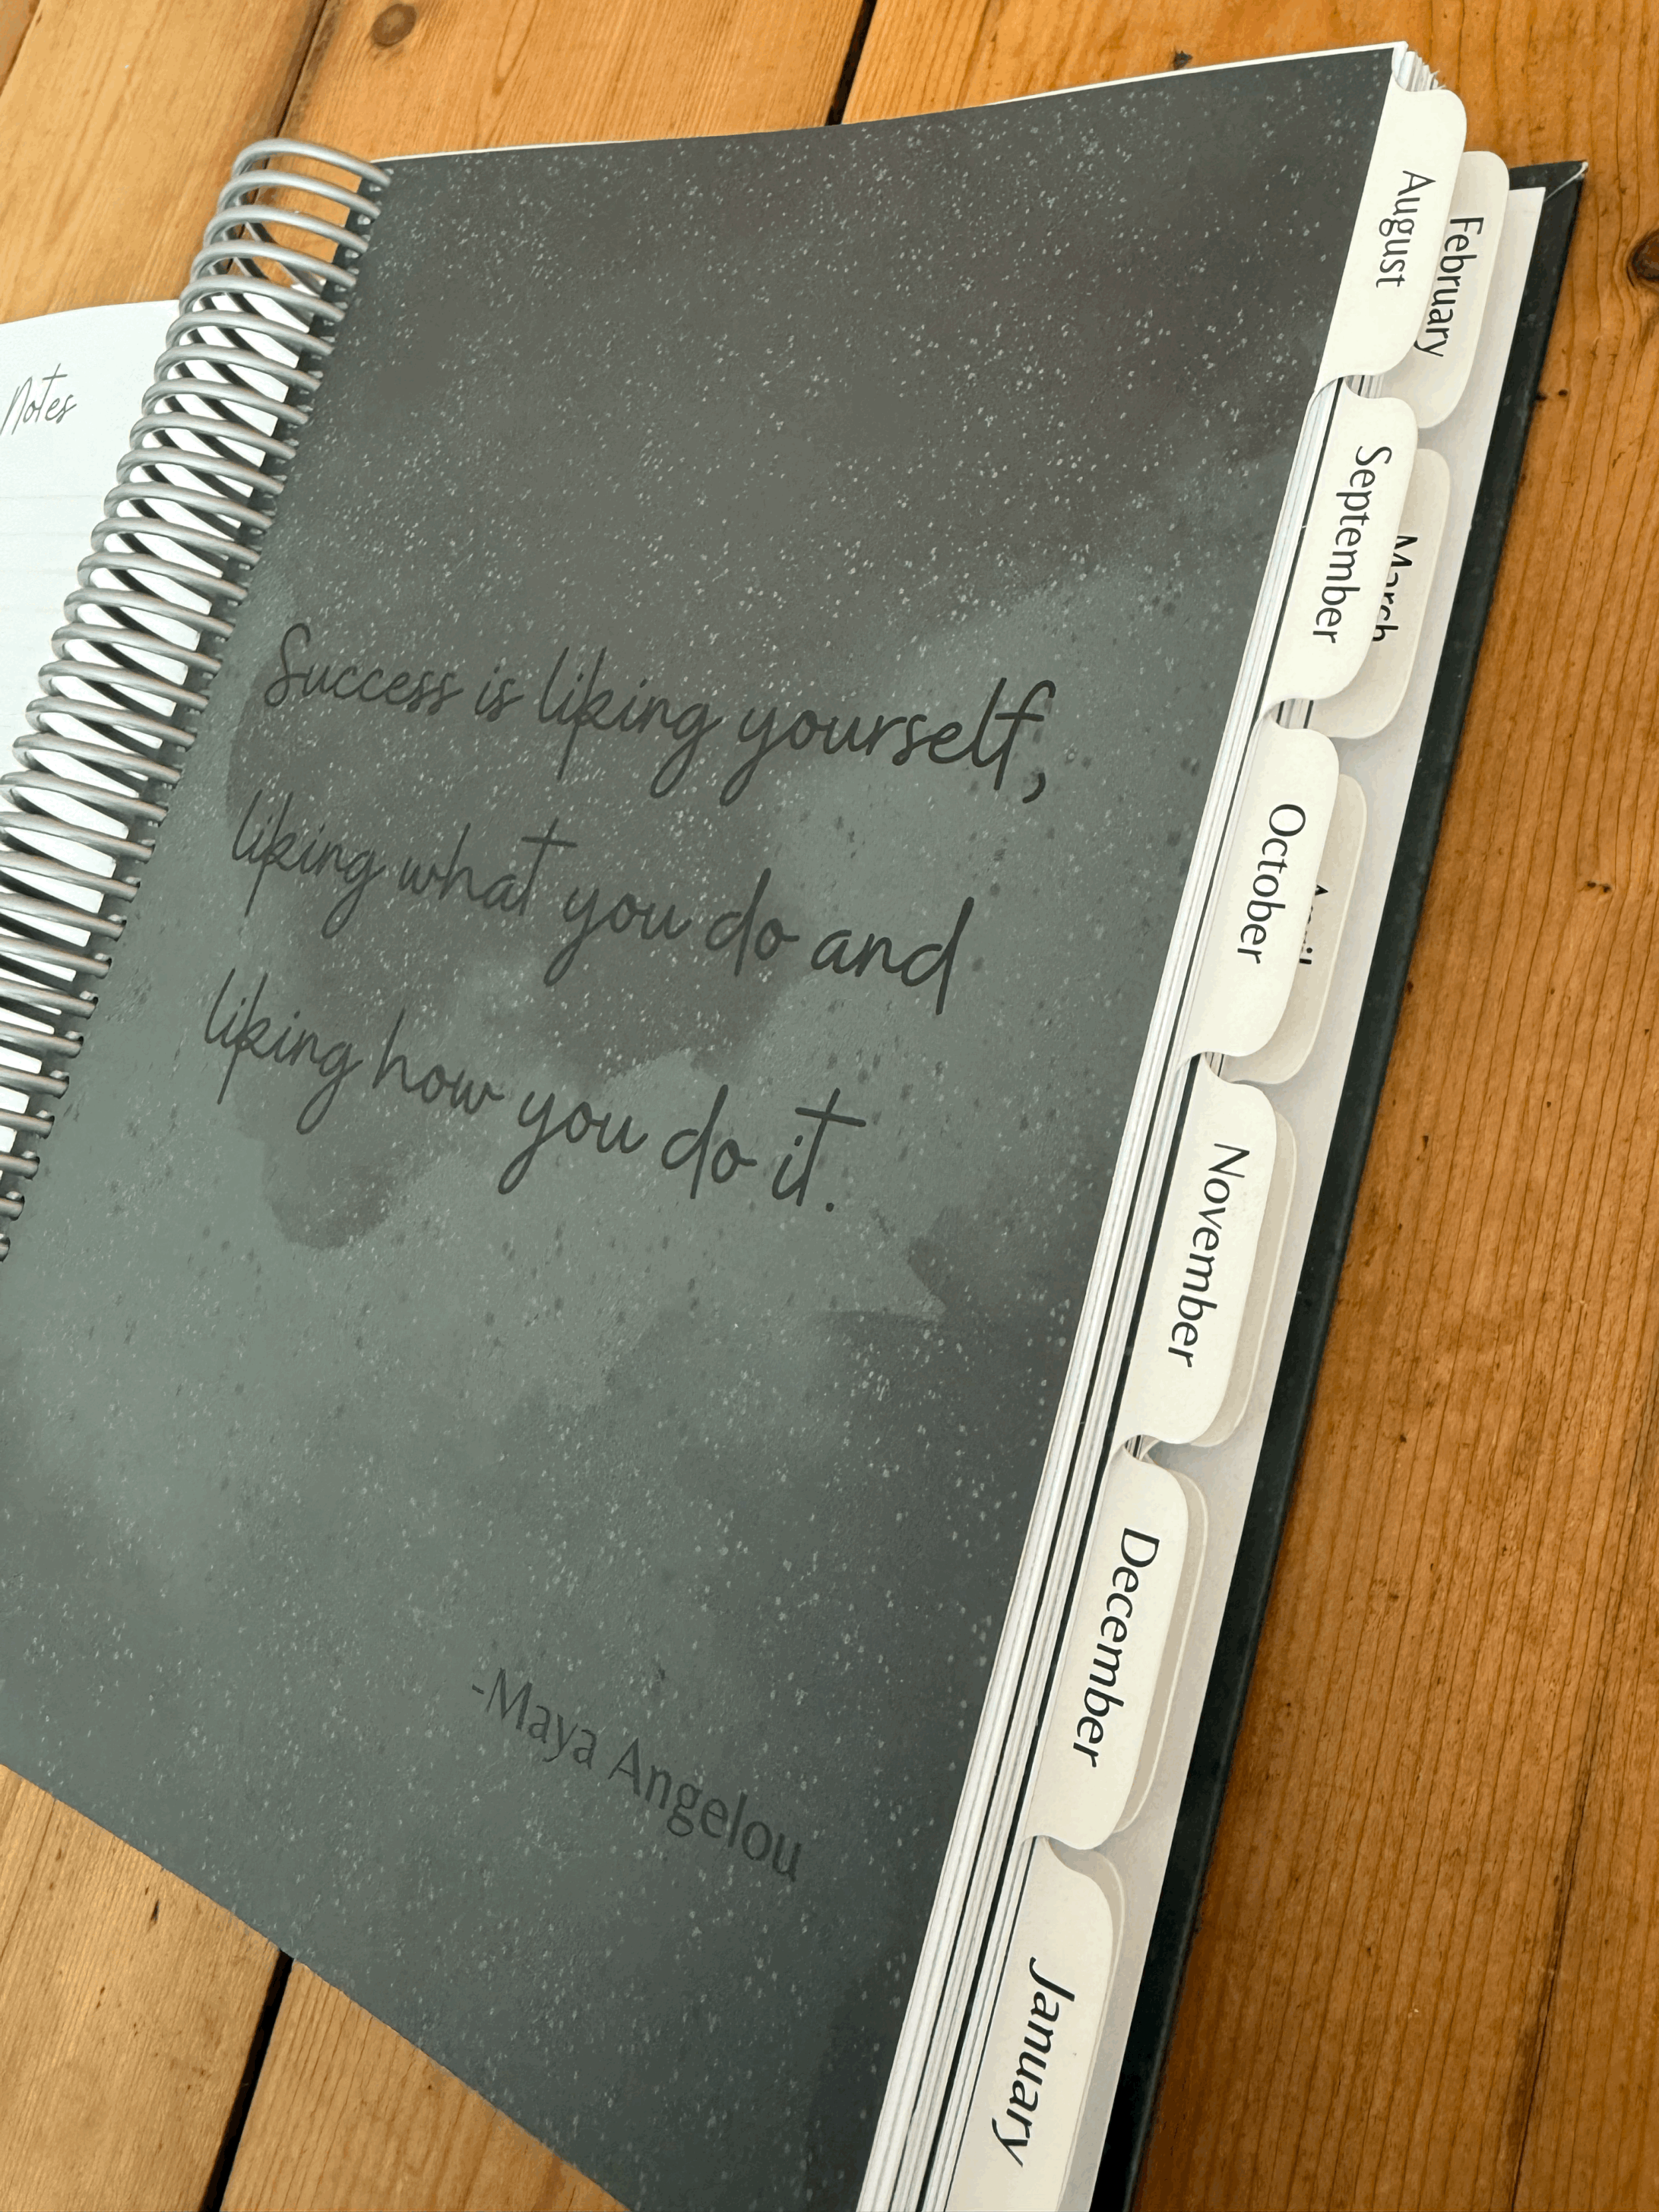 Notes
Success is liking yourself,
liking what you do and
liking how you do it.
-Maya Angelou
August
February
September
March
October
April
November
December
January